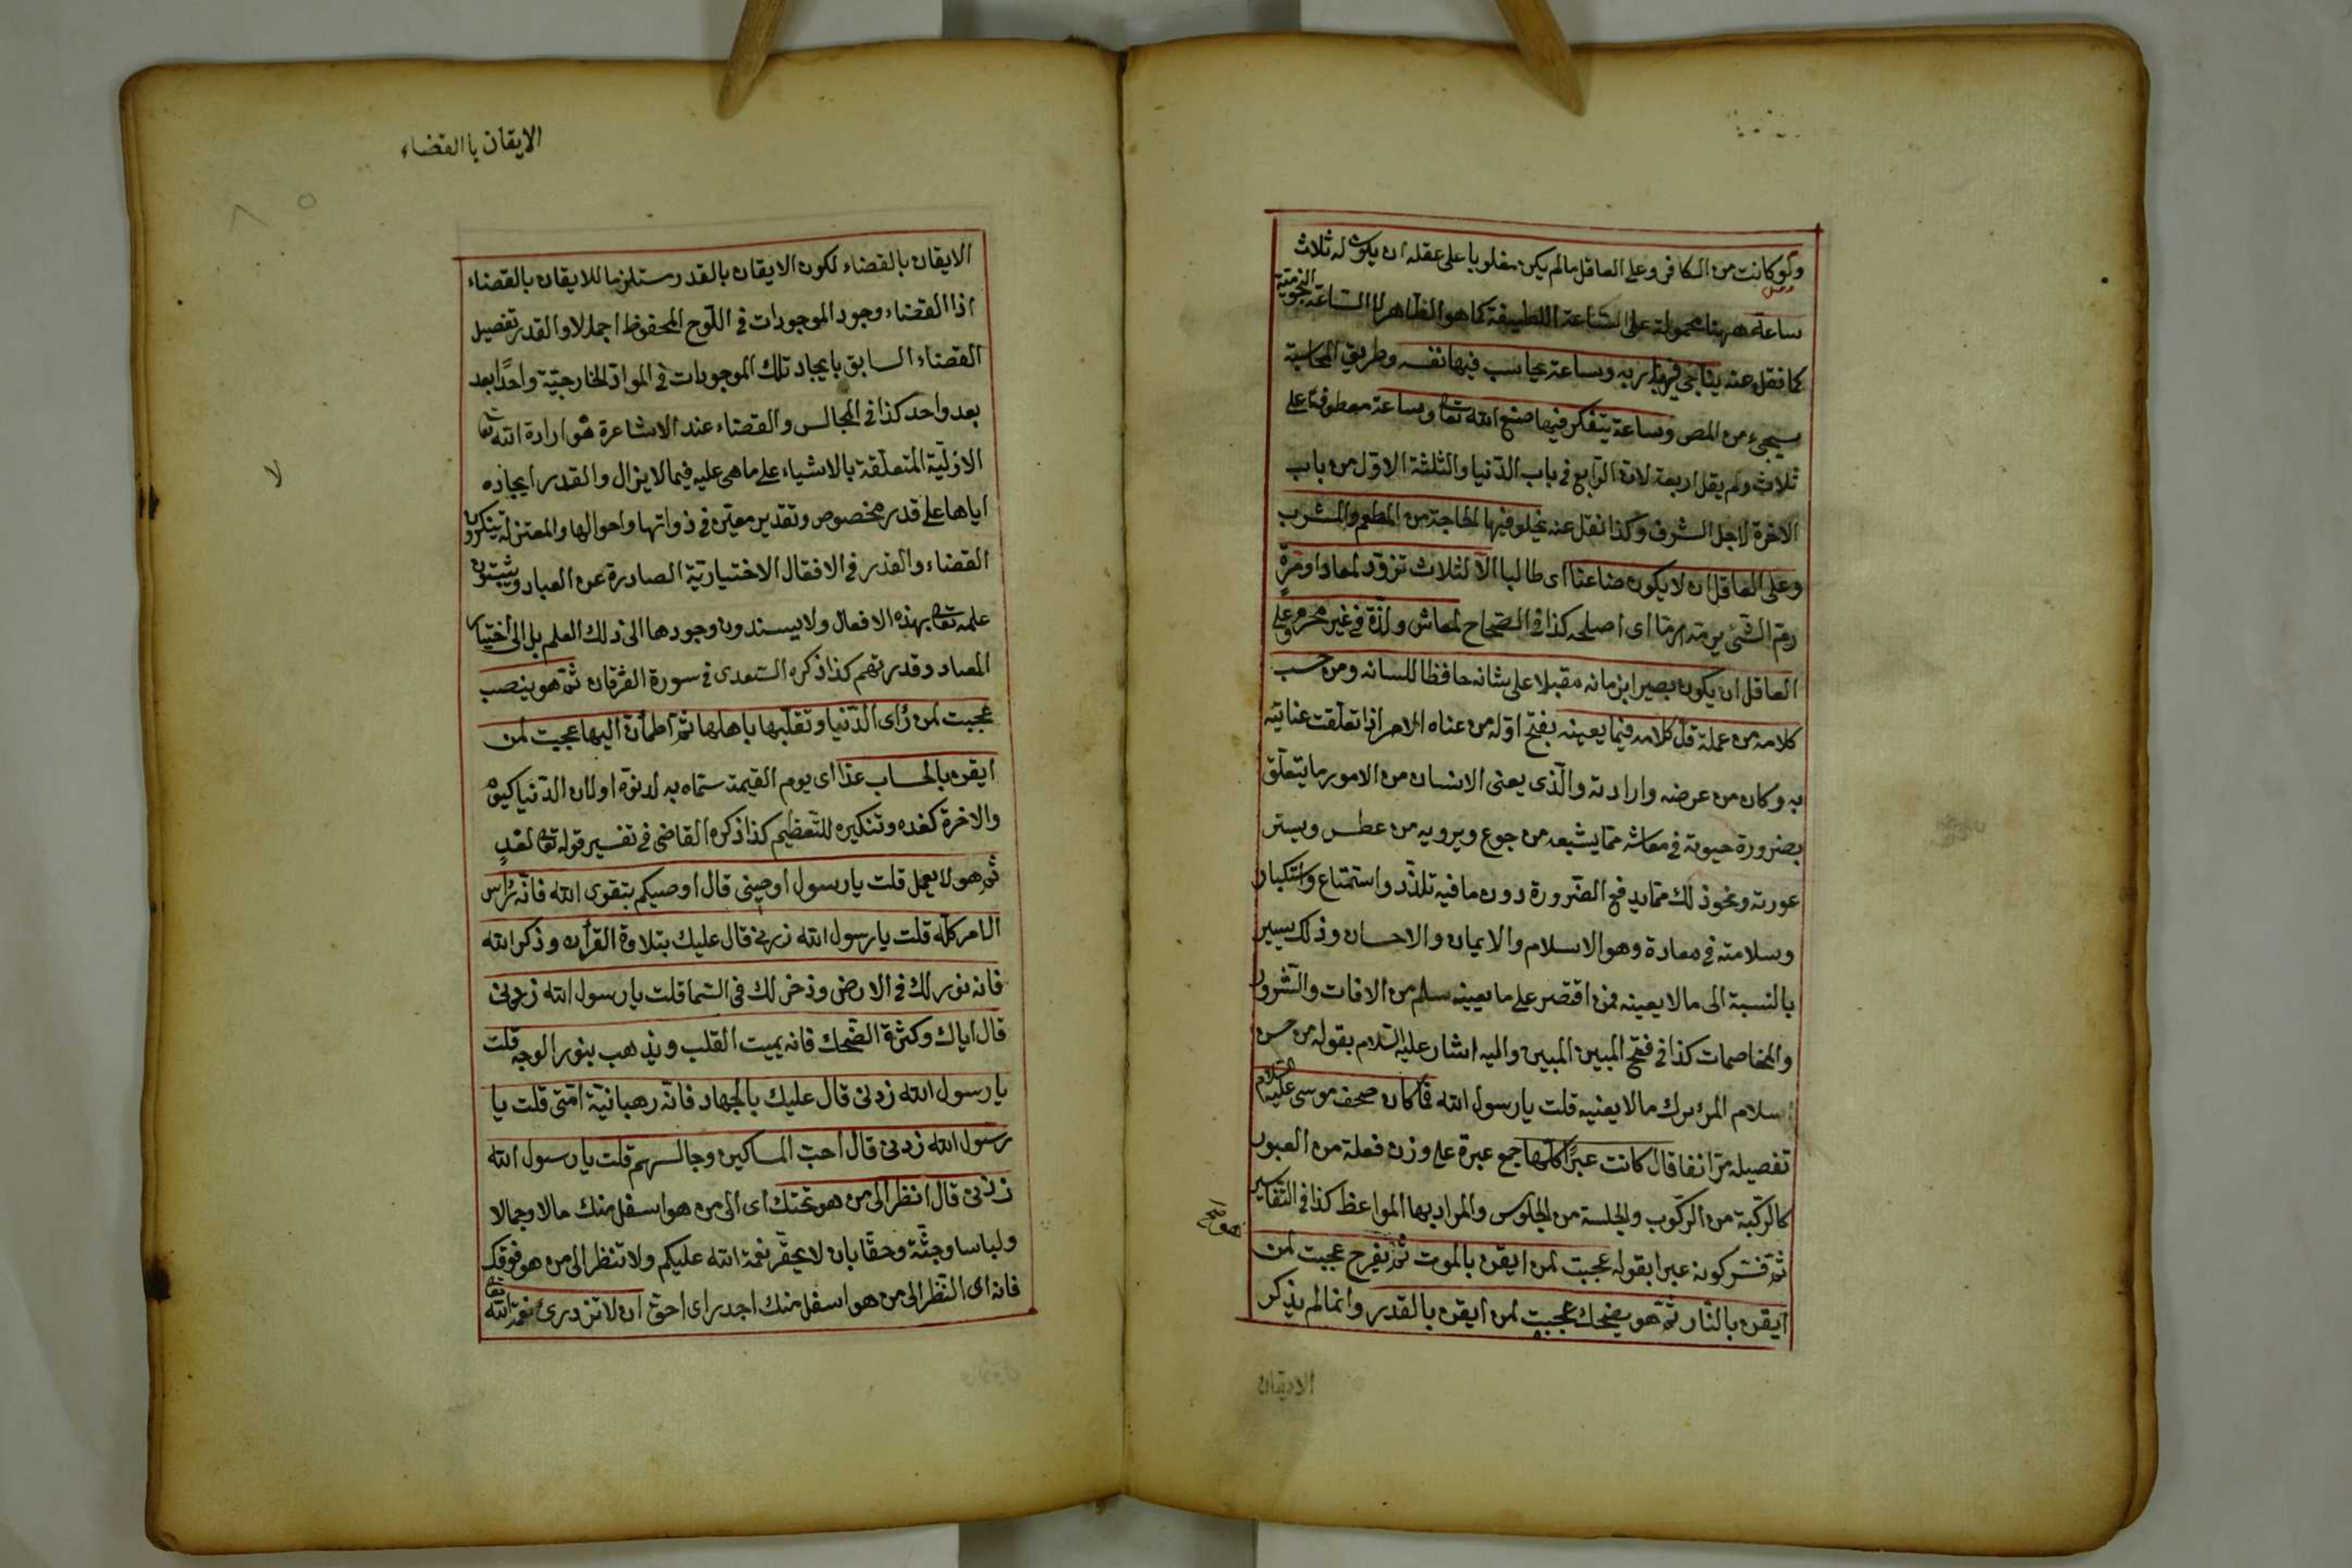 ولو كانت من الكافر وعلى العاقل مالم يكن مغلوبا على عقله ان يكون له ثلاث
ساعة ههنا محمولة على الساعة اللطيفة كما هو الظاهر لا الساعة النجومية
كما نقل عنه يناجى فيها ربه وساعة يحاسب فيها نفسه وطريق المحاسبة
سيجىء من المص وساعة يتفكر فيها صنع الله تعا وساعة معطوفة على
ثلاث ولم يقل اربعة لان الرابع فى باب الدنيا والثلثة الاول من باب
الاخرة لاجل الشرف وكذا نقل عنه يخلو فيها لحاجة من المطعم والمشرب
وعلى العاقل ان لا يكون ضاعنا اى طالبا الا لثلاث تزود لمعاد او مرمة
رم الشئ يرمه رما اى اصلحه كذا فى الصحاح لمعاش ولذة فى غير محرم وعلى
العاقل ان يكون بصيرا بزمانه مقبلا على شانه حافظا للسانه ومن حسب
كلامه من عمله قل كلامه فيما يعينه بفتح اوله من عناه الامر اذا تعلقت عنايته
به وكان من عرضه وارادته والذى يعنى الانسان من الامور ما يتعلق
بضرورة حيوته فى معاشه مما يشبعه من جوع ويرويه من عطس ويستر
عورته ونحو ذلك مما يدفع الضرورة دون ما فيه تلذذ واستمتاع واستكبار
وسلامته فى معاده وهو الاسلام والايمان والاحسان وذلك يسير
بالنسبة الى مالا يعينه فمن اقتصر على ما يعينه سلم من الافات والشرور
والمخاصمات كذا فى فتح المبين المبين واليه اشار عليه السلام بقوله من حسن
اسلام المرء ترك مالا يعنيه قلت يا رسول الله فما كان صحف موسى عليه السلام
تفصيله مر انفا قال كانت عبرًا كلها جمع عبرة على وزن فعلة من العبور
كالركبة من الركوب والجلسة من الجلوس والمراد بها المواعظ كذا فى التفاسير
ثم فسر كونه عبرا بقوله عجبت لمن ايقن بالموت ثم يفرح عجبت لمن
ايقن بالنار ثم هو يضحك عجبت لمن ايقن بالقدر وانما لم يذكر
الايقان
الايقان باالقضاء
الايقان بالقضاء لكون الايقان بالقدر مستلزما للايقان بالقضاء
اذا القضاء وجود الموجودات فى اللوح المحفوظ اجمالا والقدر تفصيل
القضاء السابق بايجاد تلك الموجودات فى المواد الخارجية واحدًا بعد
بعد واحد كذا فى المجالس والقضاء عند الاشاعرة هو ارادة الله تعا
الازلية المتعلقة بالاشياء على ماهى عليه فيما لا يزال والقدر ايجاده
اياها على قدر مخصوص وتقدير معين فى ذواتها واحوالها والمعتزلة ينكرون
القضاء والقدر فى الافعال الاختيارية الصادرة عن العباد ويثبتون
علمه تعا بهذه الافعال ولا يسندون وجودها الى ذلك العلم بل الى اختيار
العباد وقدرتهم كذا ذكره السعدى فى سورة الفرقان ثم هو ينصب
عجبت لمن رأى الدنيا وتقلبها باهلها ثم اطمأن اليها عجبت لمن
ايقن بالحساب غدا اى يوم القيمة سماه به لدنوه او لان الدنيا كيوم
والاخرة كغده وتنكيره للتعظيم كذا ذكره القاضى فى تفسير قوله تعا لغدٍ
ثم هو لا يعمل قلت يا رسول اوصينى قال اوصيكم بتقوى الله فانه رأس
الامر كله قلت يا رسول الله زدنى قال عليك بتلاوة القرأن وذكر الله
فانه نور لك فى الارض وذخر لك فى السما قلت يا رسول الله زدنى
قال اياك وكثرة الضحك فانه يميت القلب ويذهب بنور الوجه قلت
يا رسول الله زدنى قال عليك بالجهاد فانه رهبانية امتى قلت يا
رسول الله زدنى قال احب المساكين وجالسهم قلت يا رسول الله
زدنى قال انظر الى من هو تحتك اى الى من هو اسفل منك مالا وجمالا
ولباسا وجثة وحقا بان لا يحقر نعمة الله عليكم ولا تنظر الى من هو فوقك
فانه اى النظر الى من هو اسفل منك اجدر اى احق ان لا تزدرى نعمة الله تعا